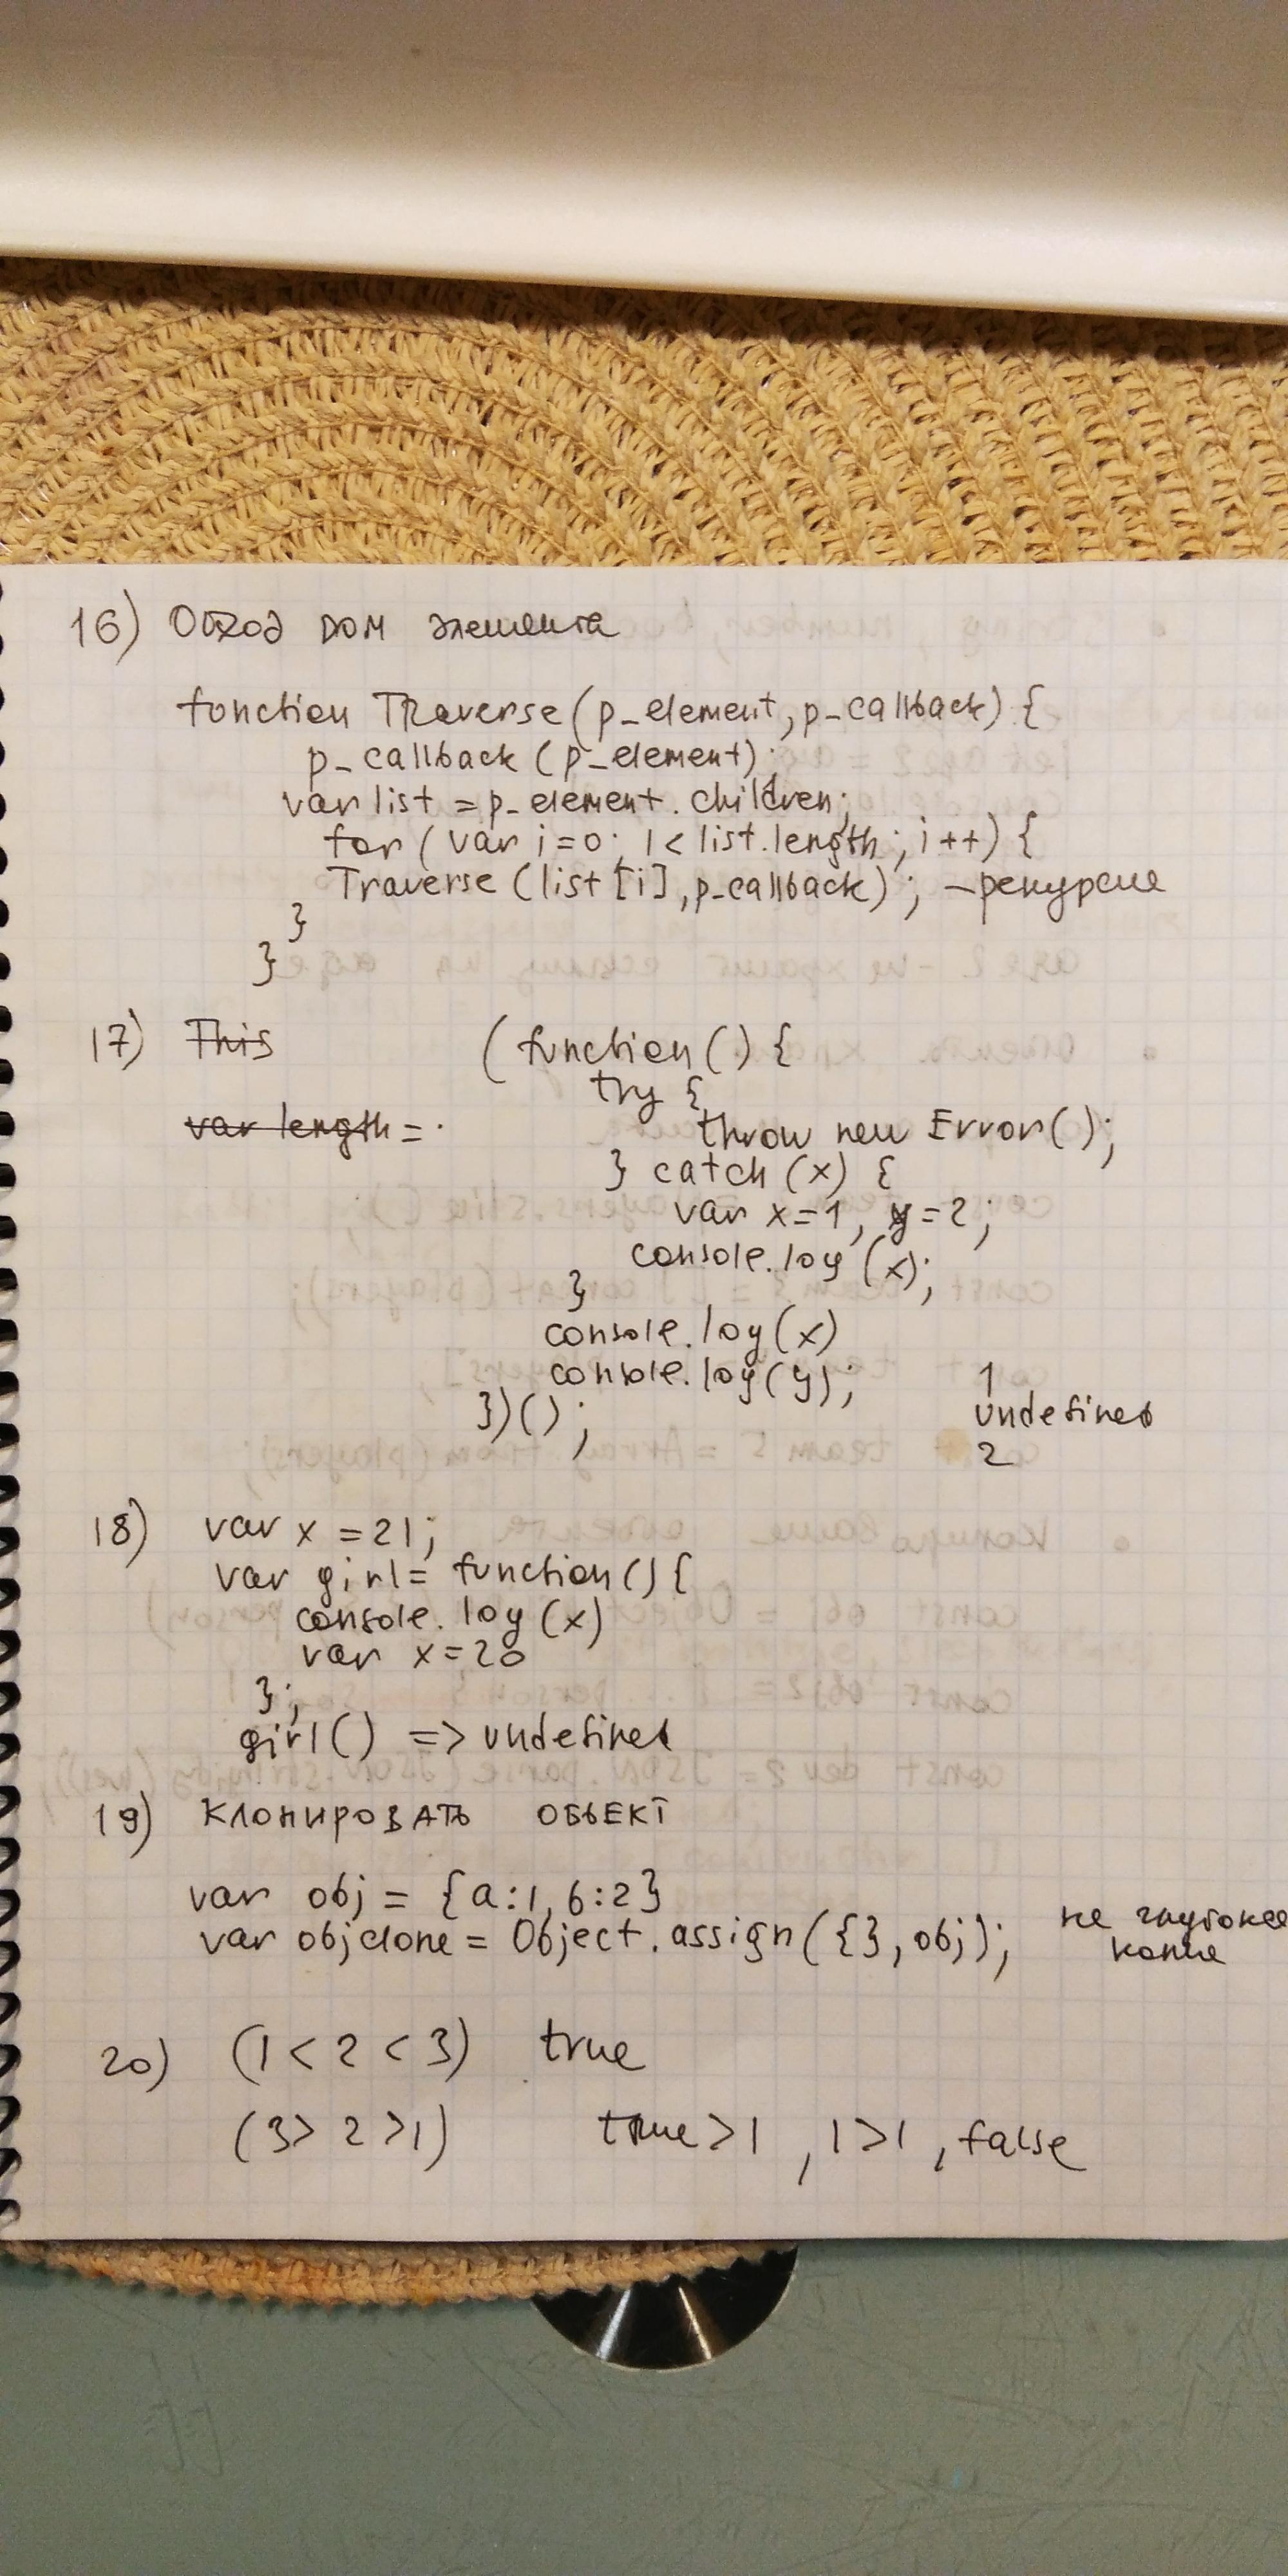 16) Обход DOM элемента
function Traverse(p_element, p_callback) {
p_callback (p_element);
var list = p_element. children;
for ( var i=0; i< list.length; i++) {
Traverse (list [i], p_callback) ; - рекурсия
}
}
17) This
(function() {
try {
var length = .
throw new Error();
} catch (x) {
var x=1, y=2;
console.log (x);
}
console.log(x)
console.log(y);
})();
1
undefined
2
18) var x = 21;
var girl= function() {
console. log (x)
var x=20
};
girl() => undefined
19) КЛОНИРОВАТЬ ОБЪЕКТ
var obj = {a:1, b:2}
var objclone = Object.assign({}, obj);
не глубокая
копия
20) (1 < 2 < 3) true
(3> 2 >1) true>1 , 1>1 , false